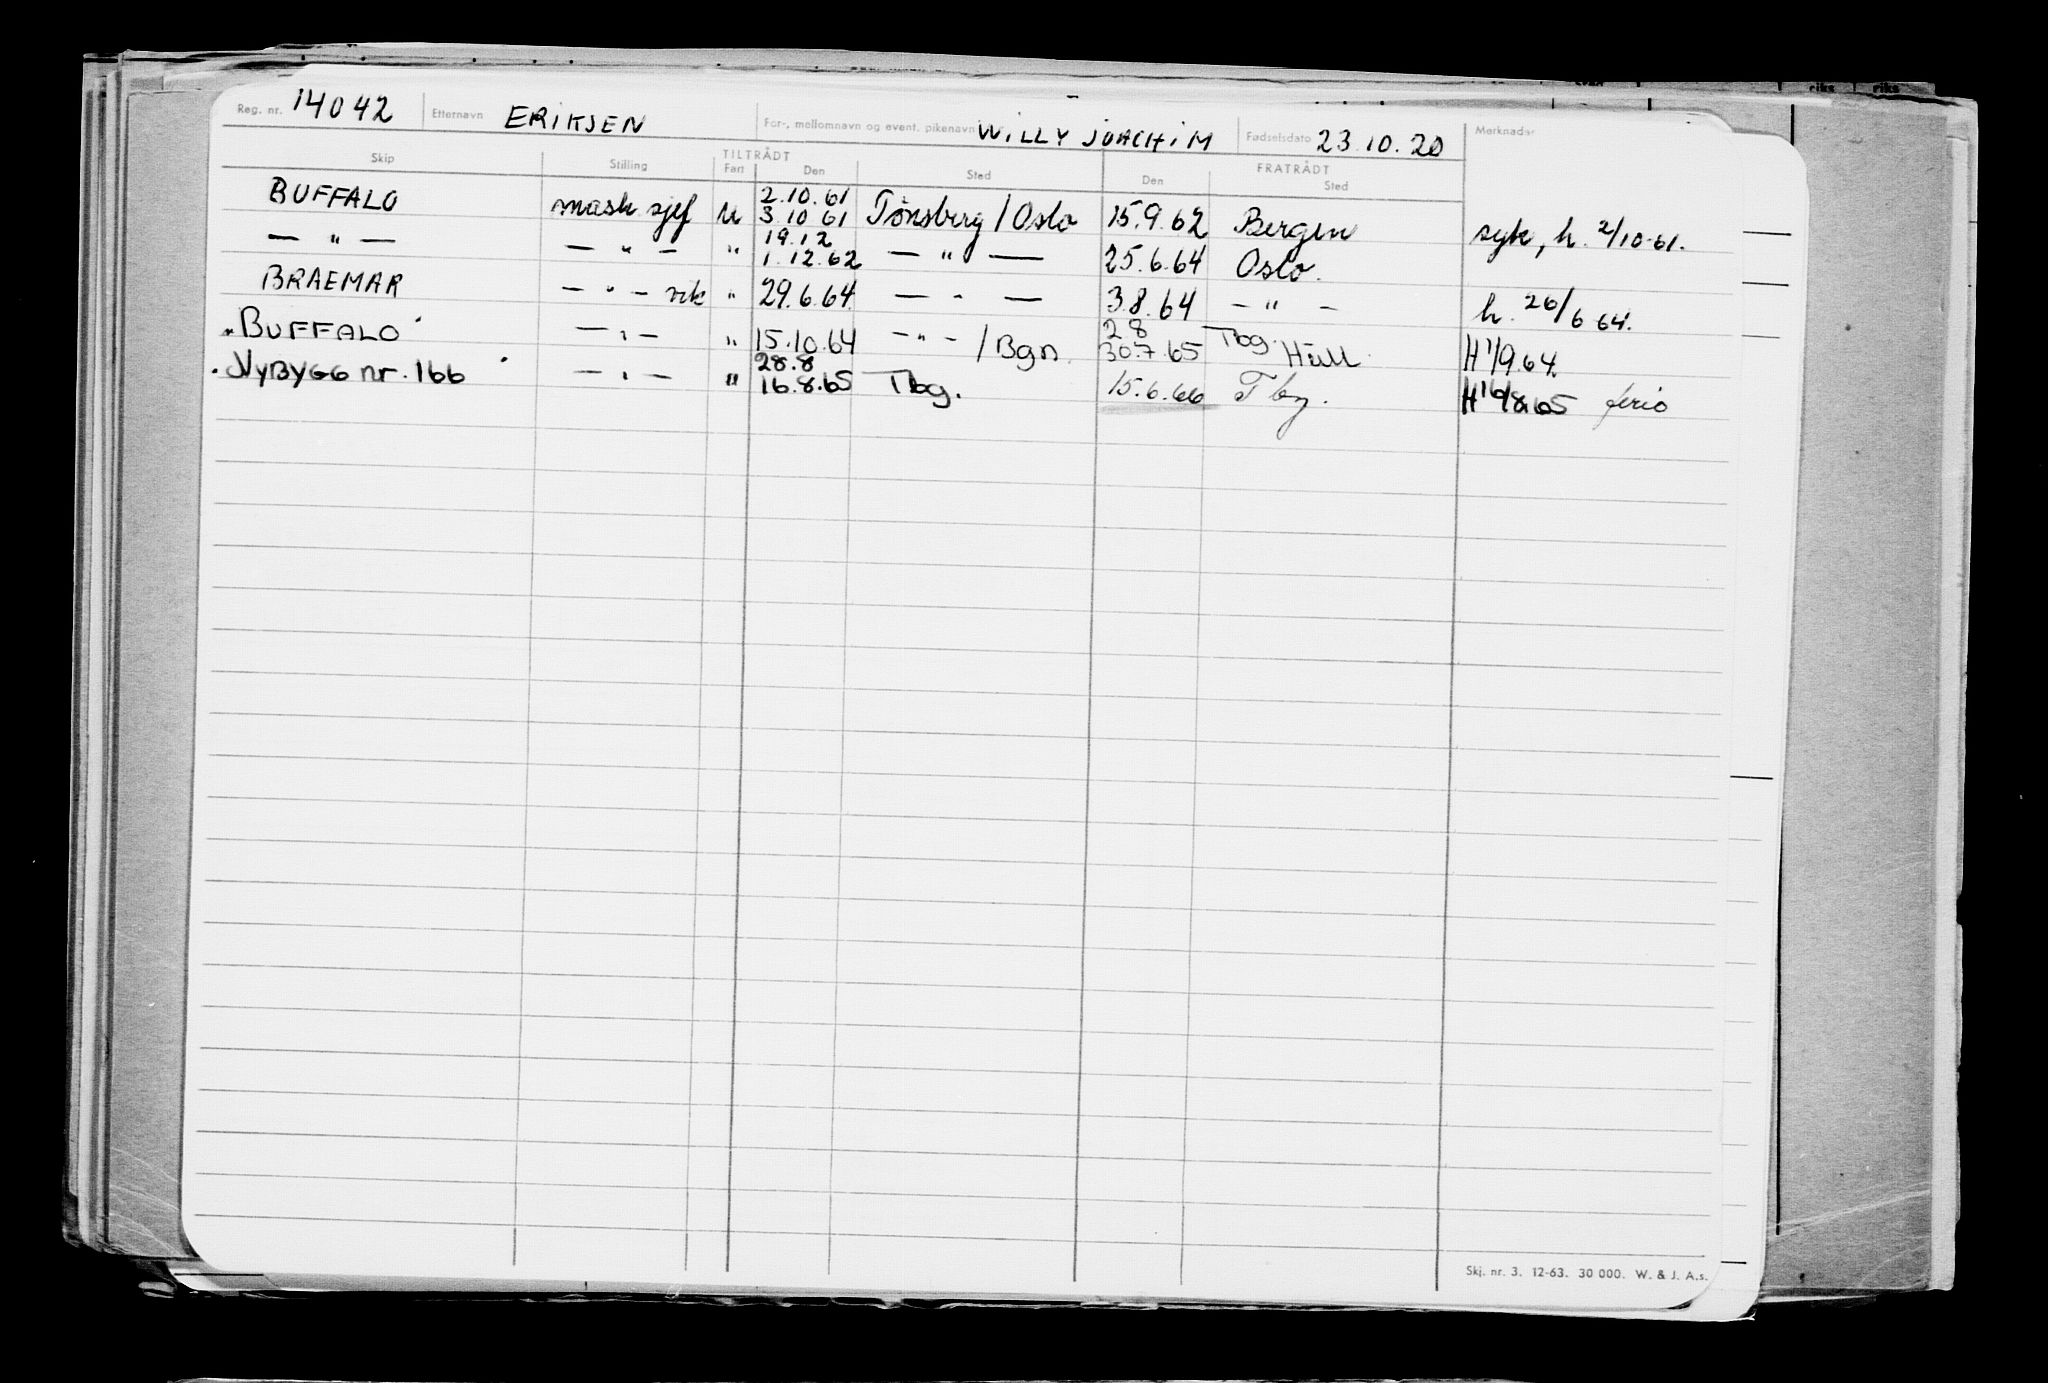 Reg. nr. 14042 Etternavn ERIKSEN For-, mellomnavn og event. pikenavn WILLY JOACHIM Fødselsdato 23.10.20 Merknader
TILTRÅDT FRATRÅDT
Skip Stilling Fart Den Sted Den Sted
2.10.61
BUFFALO mask sjef U 3.10 61 Tønsberg / Oslo 15.9.62 Bergen syk, h. 2/10-61.
19.12
— " — — " — " 1.12.62 — " — 25.6.64 Oslo.
BRAEMAR — " — vik " 29.6.64. — " — 3.8.64 — " — h. 26/6 64.
2.8 Tbg.
"BUFFALO" — " — " 15.10.64 — " — / Bgn. 30.7.65 Hull. H 1/9 64
28.8
"NYBYGG nr. 166" — " — " 16.8.65 Tbg. 15.6.66 Tbg. H 16/8.65 ferie
Skj. nr. 3. 12-63. 30 000. W. & J. A.s.